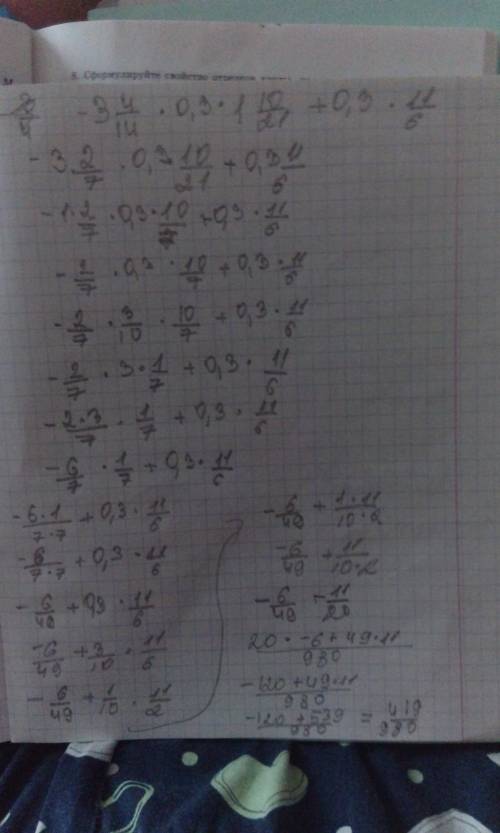 8. Сформулируйте свойство отрезков
- 3 4/14 · 0,3 · 1 10/21 + 0,3 · 11/6
- 3 · 2/7 · 0,3 10/21 + 0,3 11/6
- 1 · 2/7 · 0,3 · 10/7 + 0,3 · 11/6
- 2/7 · 0,3 · 10/7 + 0,3 · 11/6
- 2/7 · 3/10 · 10/7 + 0,3 · 11/6
- 2/7 · 3 · 1/7 + 0,3 · 11/6
- 2·3/7 · 1/7 + 0,3 · 11/6
- 6/7 · 1/7 + 0,3 · 11/6
- 6·1/7·7 + 0,3 · 11/6
- 6/7·7 + 0,3 · 11/6
- 6/49 + 0,3 · 11/6
- 6/49 + 3/10 · 11/6
- 6/49 + 1/10 · 11/2
- 6/49 + 1·11/10·2
- 6/49 + 11/10·2
- 6/49 + 11/20
20 · -6 + 49·11/980
-120 + 49·11/980
-120 + 539/980 = 419/980